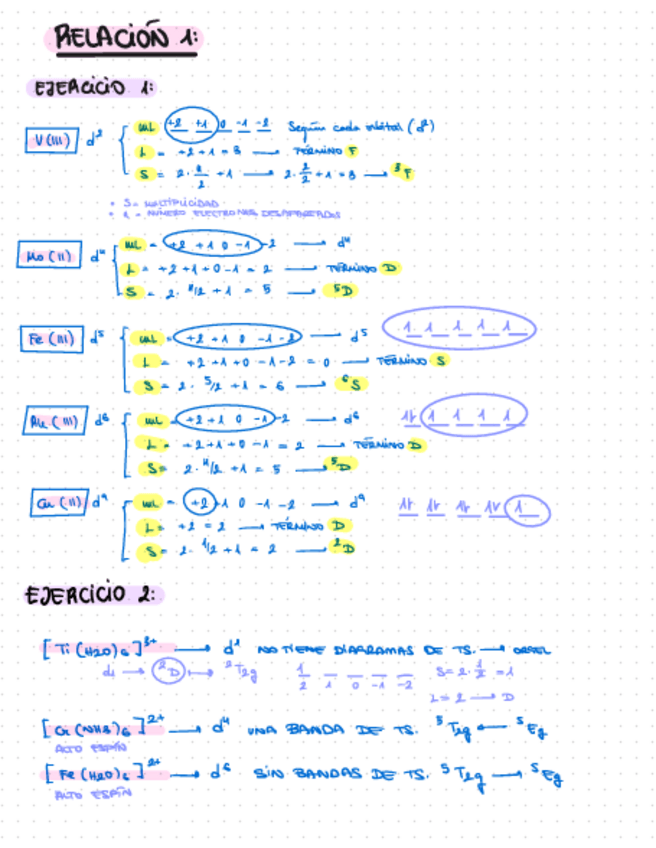 RELACIÓN 1:
EJERCICIO 1:
V (III) d² mL +2 +1 0 -1 -2 Según cada orbital (d²)
L = +2+1 = 3 → TÉRMINO F
S = 2· 2/2 +1 → 2· 2/2 +1 = 3 → ³F
* S = MULTIPLICIDAD
* 1 = NÚMERO ELECTRONES DESAPAREADOS
Mo (II) d⁴ mL = +2 +1 0 -1 -2 → d⁴
L = +2+1+0-1 = 2 → TÉRMINO D
S = 2· 4/2 + 1 = 5 → ⁵D
Fe (III) d⁵ mL = +2 +1 0 -1 -2 → d⁵ 1 1 1 1 1
L = +2+1+0-1-2 = 0 → TÉRMINO S
S = 2· 5/2 + 1 = 6 → ⁶S
(III) d⁶ mL = +2 +1 0 -1 -2 → d⁶ 1↓ 1 1 1 1
L = +2+1+0-1 = 2 → TÉRMINO D
S = 2· 4/2 +1 = 5 → ⁵D
Cu (II) d⁹ mL = +2 +1 0 -1 -2 → d⁹ 1↓ 1↓ 1↓ 1↓ 1
L = +2 = 2 → TÉRMINO D
S = 2· 1/2 + 1 = 2 → ²D
EJERCICIO 2:
[Ti(H2O)6]³⁺ → d¹ NO TIENE DIAGRAMAS DE TS. → ORGEL
d1 → ²D → ²T2g 1 2 1 0 -1 -2 S = 2· 1/2 = 1
L = 2 → D
[Cr(NH3)6]²⁺ → d⁴ UNA BANDA DE TS. ⁵T2g ← ⁵Eg
ALTO ESPÍN
[Fe(H2O)6]²⁺ → d⁶ SIN BANDAS DE TS. ⁵T2g → ⁵Eg
ALTO ESPÍN